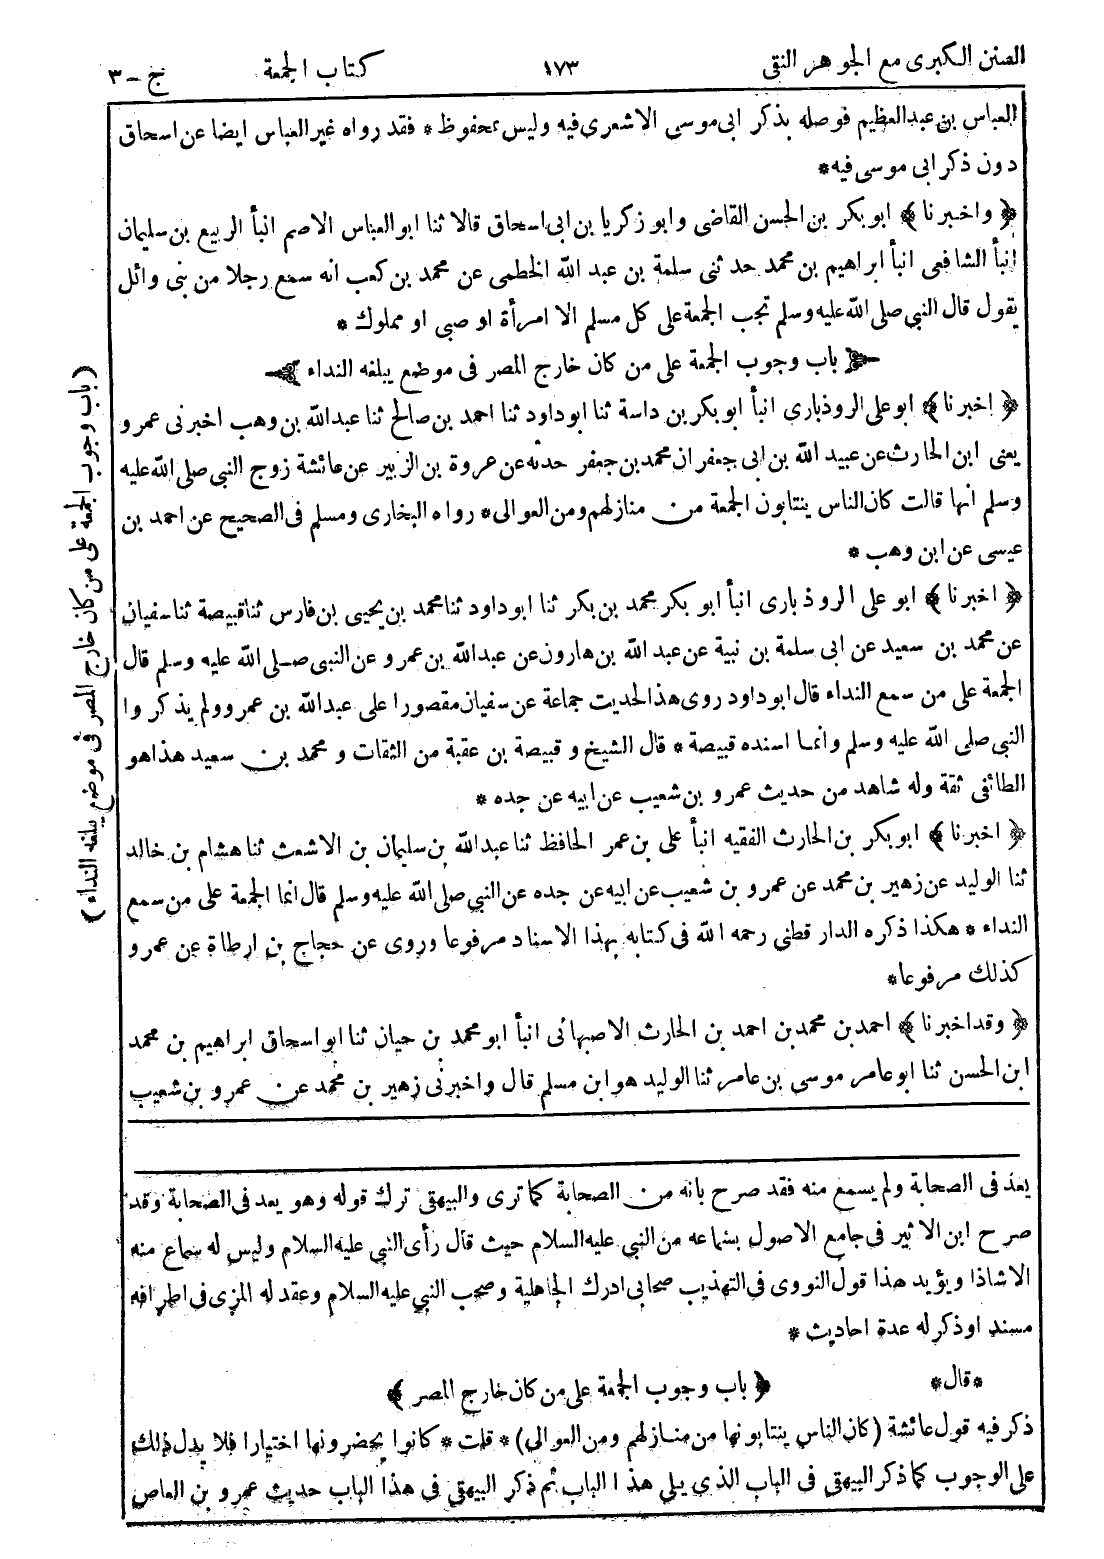 السنن الكبرى مع الجوهر النقى ١٧٣ كتاب الجمعة ج-٣
العباس بن عبدالعظيم فوصله بذكر ابى موسى الاشعرى فيه وليس بمحفوظ * فقد رواه غير العباس ايضا عن اسحاق
دون ذكر ابى موسى فيه *
﴿ واخبرنا ﴾ ابوبكر بن الحسن القاضى وابو زكريا بن ابى اسحاق قالا ثنا ابوالعباس الاصم انبأ الربيع بن سليمان
انبأ الشافعى انبأ ابراهيم بن محمد حدثنى سلمة بن عبد الله الخطمى عن محمد بن كعب انه سمع رجلا من بنى وائل
يقول قال النبي صلى الله عليه وسلم تجب الجمعة على كل مسلم الا امرأة او صبى او مملوك *
﴿ باب وجوب الجمعة على من كان خارج المصر فى موضع يبلغه النداء ﴾
﴿ اخبرنا ﴾ ابوعلى الروذبارى انبأ ابوبكر بن داسة ثنا ابوداود ثنا احمد بن صالح ثنا عبدالله بن وهب اخبرنى عمرو
يعنى ابن الحارث عن عبيد الله بن ابى جعفر ان محمد بن جعفر حدثه عن عروة بن الزبير عن عائشة زوج النبي صلى الله عليه
وسلم انها قالت كان الناس ينتابون الجمعة من منازلهم ومن العوالى * رواه البخارى ومسلم فى الصحيح عن احمد بن
عيسى عن ابن وهب *
﴿ اخبرنا ﴾ ابو على الروذبارى انبأ ابو بكر محمد بن بكر ثنا ابوداود ثنا محمد بن يحيى بن فارس ثنا قبيصة ثنا سفيان
عن محمد بن سعيد عن ابى سلمة بن نبية عن عبد الله بن هارون عن عبدالله بن عمرو عن النبى صلى الله عليه وسلم قال
الجمعة على من سمع النداء قال ابوداود روى هذا الحديث جماعة عن سفيان مقصورا على عبدالله بن عمرو ولم يذكروا
النبى صلى الله عليه وسلم وانما اسنده قبيصة * قال الشيخ وقبيصة بن عقبة من الثقات و محمد بن سعيد هذا هو
الطائفى ثقة وله شاهد من حديث عمرو بن شعيب عن ابيه عن جده *
﴿ اخبرنا ﴾ ابوبكر بن الحارث الفقيه انبأ على بن عمر الحافظ ثنا عبدالله بن سليمان بن الاشعث ثنا هشام بن خالد
ثنا الوليد عن زهير بن محمد عن عمرو بن شعيب عن ابيه عن جده عن النبي صلى الله عليه وسلم قال انما الجمعة على من سمع
النداء * هكذا ذكره الدار قطنى رحمه الله فى كتابه بهذا الاسناد مرفوعا وروى عن حجاج بن ارطاة عن عمرو
كذلك مرفوعا *
﴿ وقد اخبرنا ﴾ احمد بن محمد بن احمد بن الحارث الاصبهانى انبأ ابو محمد بن حيان ثنا ابواسحاق ابراهيم بن محمد
ابن الحسن ثنا ابوعامر موسى بن عامر ثنا الوليد هو ابن مسلم قال واخبرنى زهير بن محمد عن عمرو بن شعيب
(باب وجوب الجمعة على من كان خارج المصر فى موضع يبلغه النداء)
يعد فى الصحابة ولم يسمع منه فقد صرح بانه من الصحابة كما ترى والبيهقى ترك قوله وهو يعد فى الصحابة وقد
صرح ابن الاثير فى جامع الاصول بسماعه من النبي عليه السلام حيث قال رأى النبي عليه السلام وليس له سماع منه
الا شاذا ويؤيد هذا قول النووى فى التهذيب صحابى ادرك الجاهلية وصحب النبي عليه السلام وعقد له المزى فى اطرافه
مسند اوذكر له عدة احاديث *
* قال * ﴿ باب وجوب الجمعة على من كان خارج المصر ﴾
ذكر فيه قول عائشة (كان الناس ينتابونها من منازلهم ومن العوالى) * قلت * كانوا يحضرونها اختيارا فلا يدل ذلك
على الوجوب كما ذكر البيهقى فى الباب الذى يلى هذا الباب ثم ذكر البيهقى فى هذا الباب حديث عمرو بن العاص